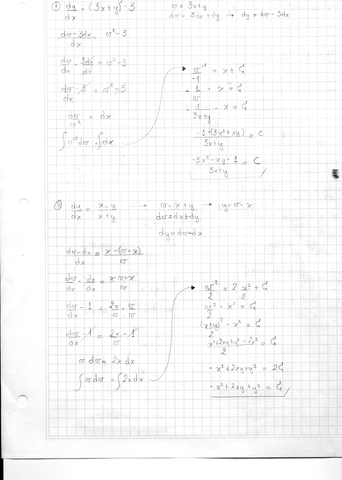 ① dy/dx = (3x+y)² - 3    v = 3x+y
dv = 3dx + dy → dy = dv - 3dx
dv - 3dx / dx = v² - 3
dv/dx - 3dx/dx = v² - 3
dv/dx - 3 = v² - 3
dv/v² = dx
∫ v⁻² dv = ∫ dx
v⁻¹/-1 = x + C
-1/v - x = C
-1/(3x+y) - x = C
-1 - (3x² + xy) / 3x+y = C
-3x² - xy - 1 / 3x+y = C
dy/dx = x-y / x+y → v = x+y → y = v - x
dv = dx + dy
dy = dv - dx
dv - dx / dx = x - (v - x) / v
dv/dx - dx/dx = x - v + x / v
dv/dx - 1 = 2x/v - v/v
dv/dx - 1 = 2x/v - 1
v dv = 2x dx
∫ v dv = ∫ 2x dx
v²/2 = 2x²/2 + C
v²/2 - x² = C
(x+y)²/2 - x² = C
x² + 2xy + y² - 2x² / 2 = C
-x² + 2xy + y² = 2C
-x² + 2xy + y² = C